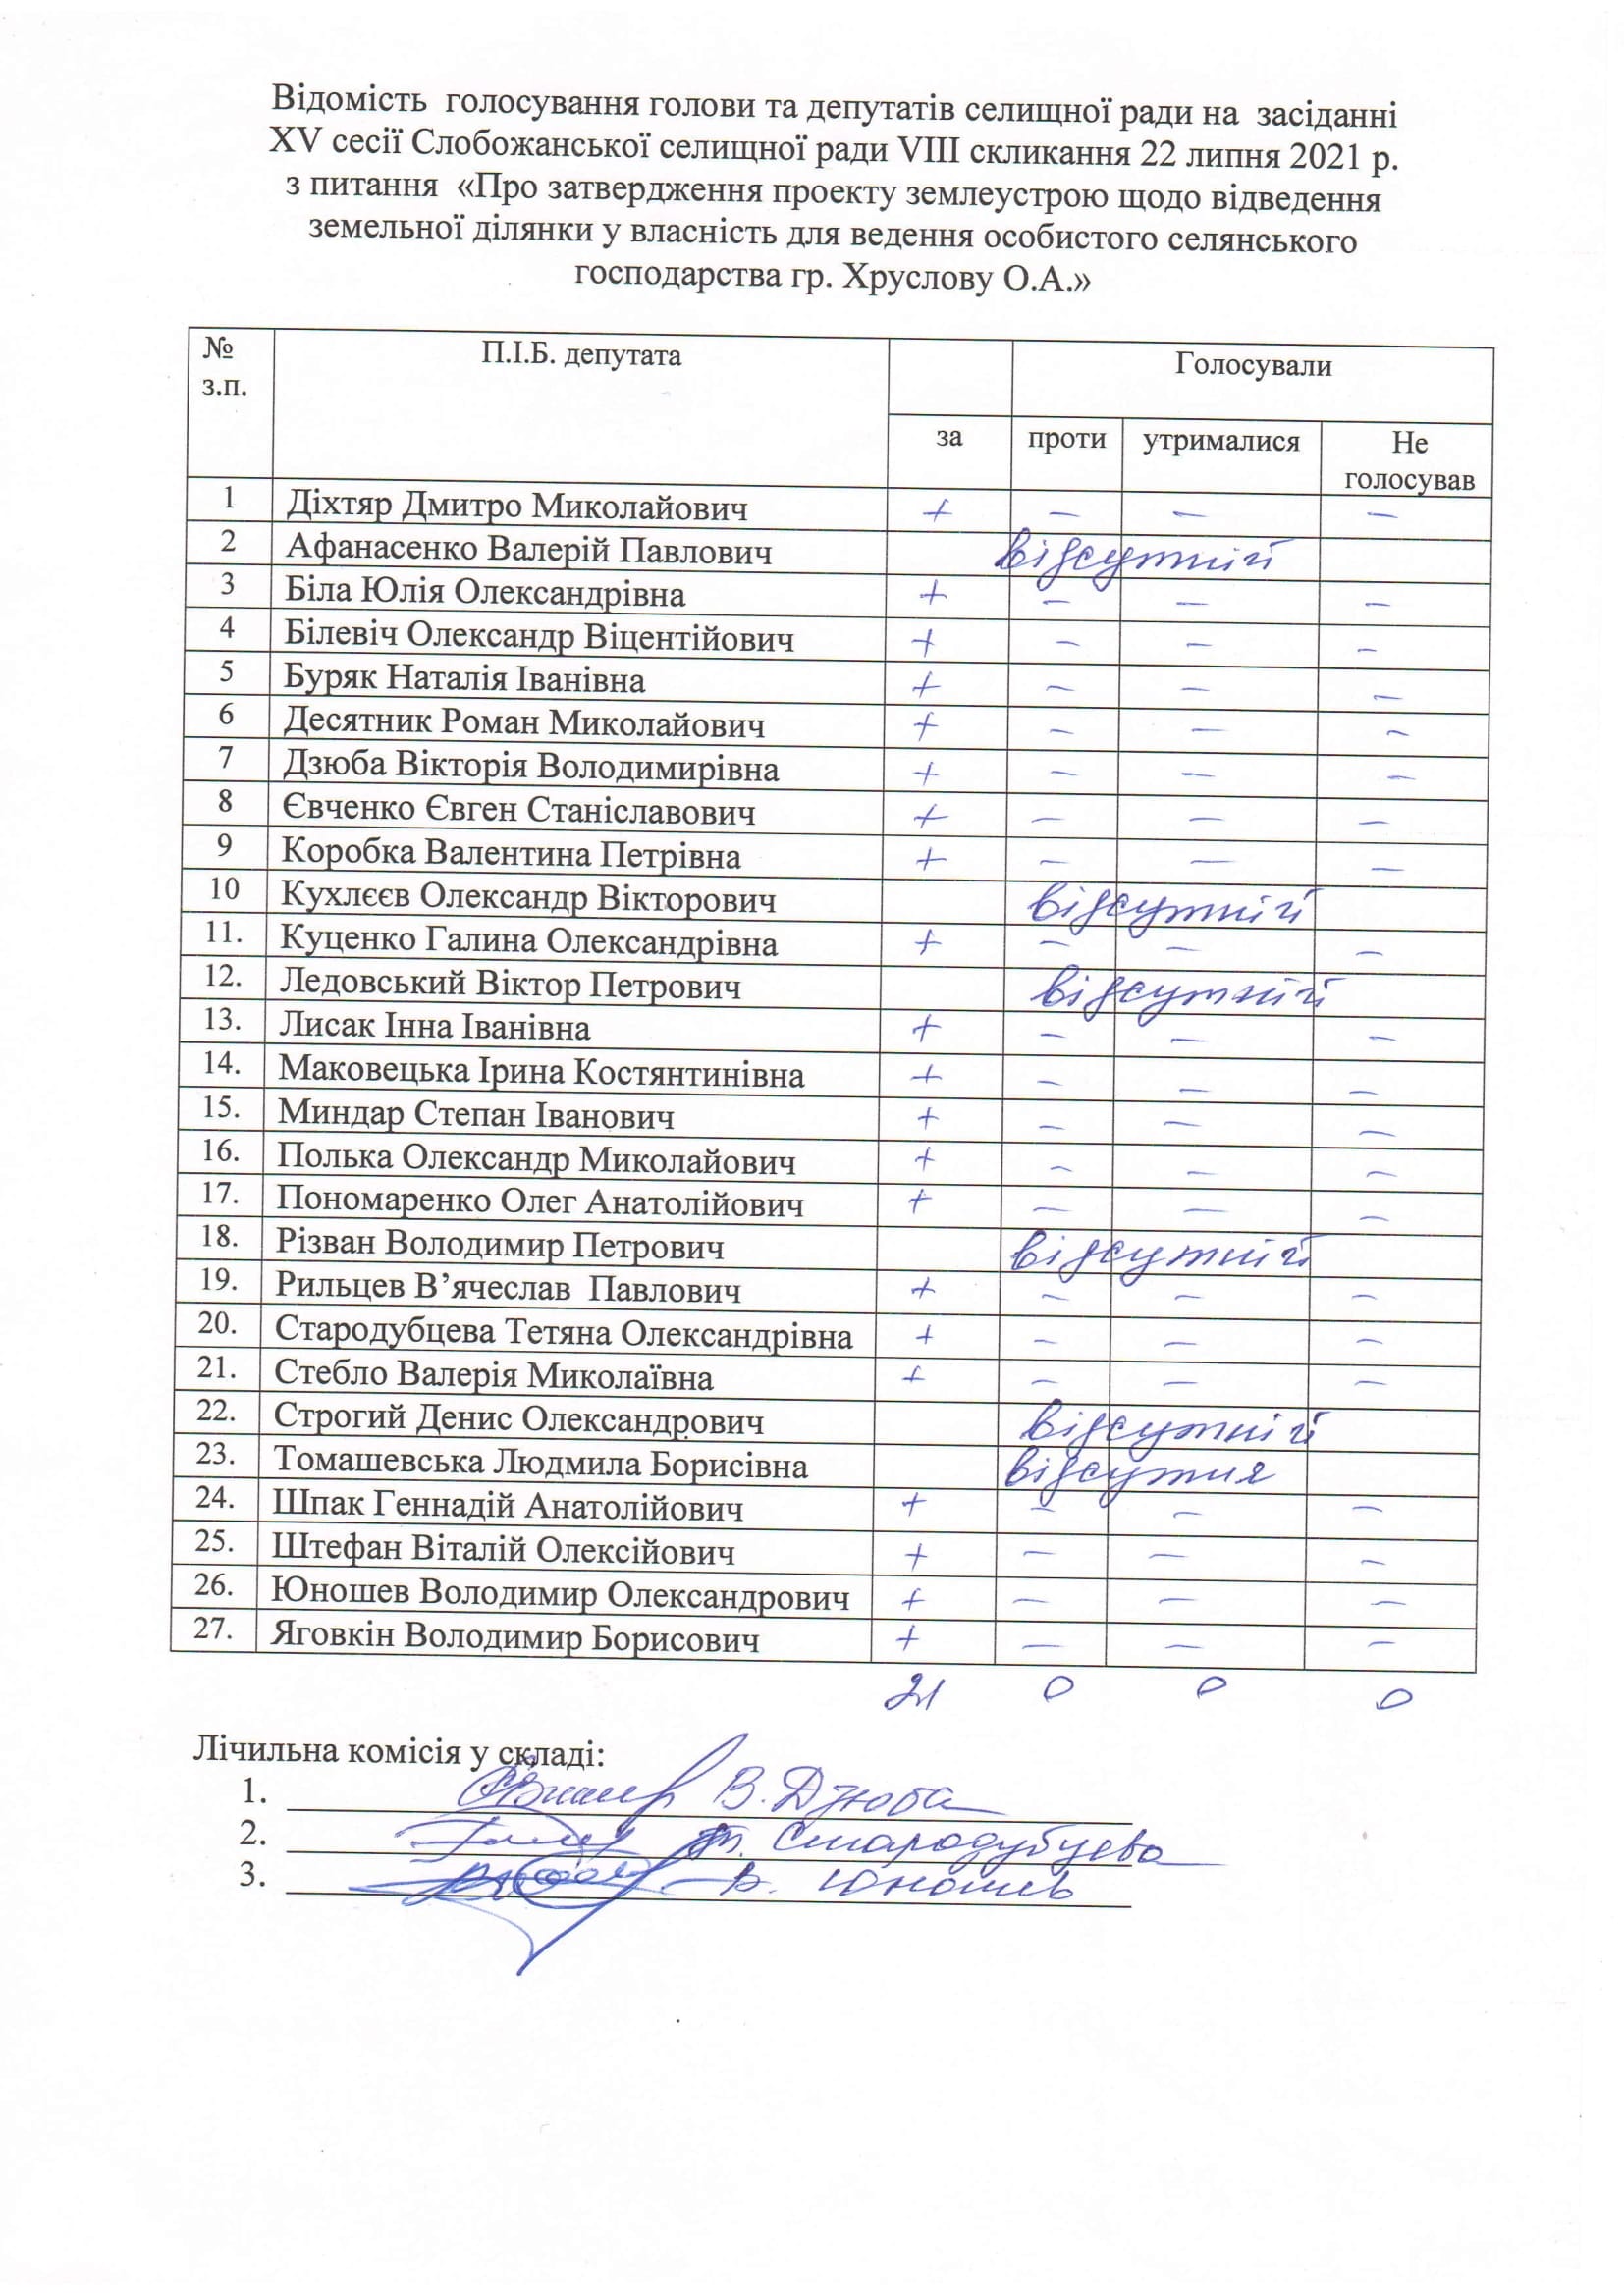 Відомість голосування голови та депутатів селищної ради на засіданні
XV сесії Слобожанської селищної ради VIII скликання 22 липня 2021 р.
з питання «Про затвердження проекту землеустрою щодо відведення
земельної ділянки у власність для ведення особистого селянського
господарства гр. Хруслову О.А.»
№ з.п. П.І.Б. депутата Голосували
за проти утрималися Не голосував
1 Діхтяр Дмитро Миколайович + – – –
2 Афанасенко Валерій Павлович відсутній
3 Біла Юлія Олександрівна + – – –
4 Білевіч Олександр Віцентійович + – – –
5 Буряк Наталія Іванівна + – – –
6 Десятник Роман Миколайович + – – –
7 Дзюба Вікторія Володимирівна + – – –
8 Євченко Євген Станіславович + – – –
9 Коробка Валентина Петрівна + – – –
10 Кухлєєв Олександр Вікторович відсутній
11. Куценко Галина Олександрівна + – – –
12. Ледовський Віктор Петрович відсутній
13. Лисак Інна Іванівна + – – –
14. Маковецька Ірина Костянтинівна + – – –
15. Миндар Степан Іванович + – – –
16. Полька Олександр Миколайович + – – –
17. Пономаренко Олег Анатолійович + – – –
18. Різван Володимир Петрович відсутній
19. Рильцев В’ячеслав Павлович + – – –
20. Стародубцева Тетяна Олександрівна + – – –
21. Стебло Валерія Миколаївна + – – –
22. Строгий Денис Олександрович відсутній
23. Томашевська Людмила Борисівна відсутня
24. Шпак Геннадій Анатолійович + – – –
25. Штефан Віталій Олексійович + – – –
26. Юношев Володимир Олександрович + – – –
27. Яговкін Володимир Борисович + – – –
21 0 0 0
Лічильна комісія у складі:
1. В. Дзюба
2. Т. Стародубцева
3. В. Юношев